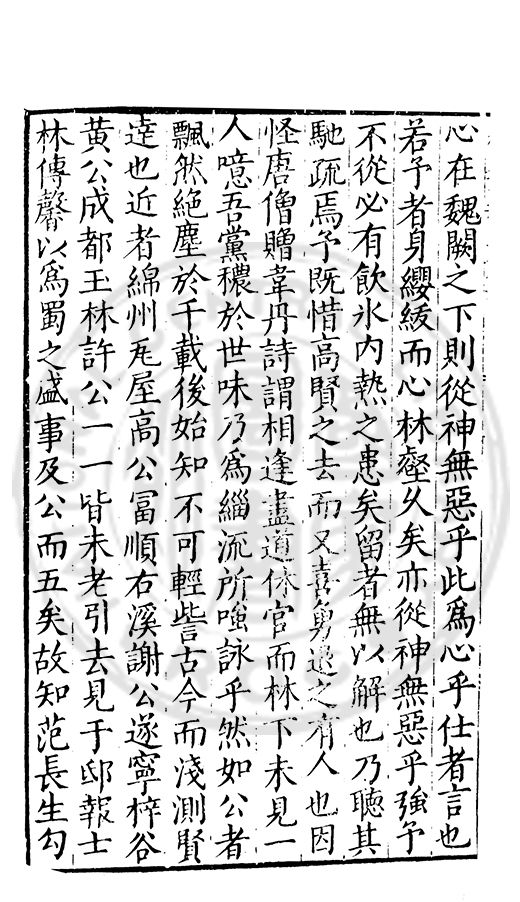 心在魏闕之下則從神無惡乎此爲心乎仕者言也
若予者身纓紱而心林壑久矣亦從神無惡乎強予
不從必有飲氷內熱之患矣留者無以解也乃聽其
馳疏焉予既惜高賢之去而又喜勇退之有人也因
怪唐僧贈韋丹詩謂相逢盡道休官而林下未見一
人噫吾黨穠於世味乃爲緇流所嗤詠乎然如公者
飄然絶塵於千載後始知不可輕訾古今而淺測賢
逹也近者綿州瓦屋高公冨順右溪謝公遂寧梓谷
黄公成都玉林許公一一皆未老引去見于邸報士
林傳馨以爲蜀之盛事及公而五矣故知范長生勾